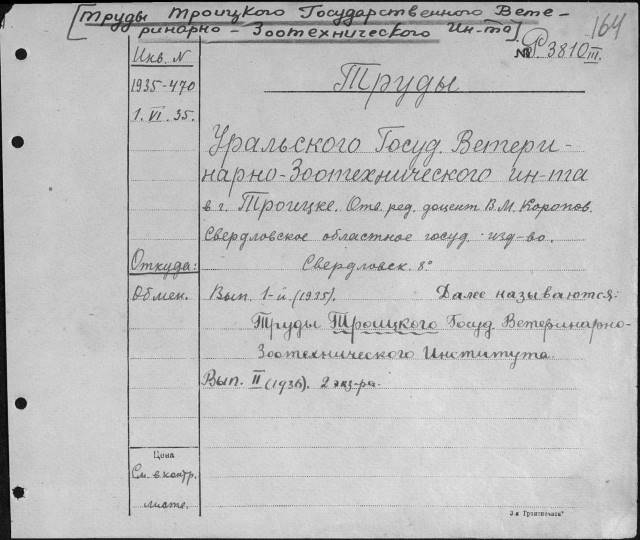 [Труды Троицкого Государственного Вете-
ринарно-Зоотехнического Ин-та]
164
№ Р. 3810 III.
Инв. N
1935-470
1. VI. 35.
Труды
Уральского Госуд. Ветери-
нарно-Зоотехнического ин-та
в г. Троицке. Отв. ред. доцент В.М. Коропов.
Свердловское областное госуд. изд-во.
Откуда: Свердловск. 8°
Обмен. Вып. 1-й (1935). Далее называются:
Труды Троицкого Госуд Ветеринарно-
Зоотехнического Института.
Вып. II (1936). 2 экз-ра.
Цена
См. в контр.
листе.